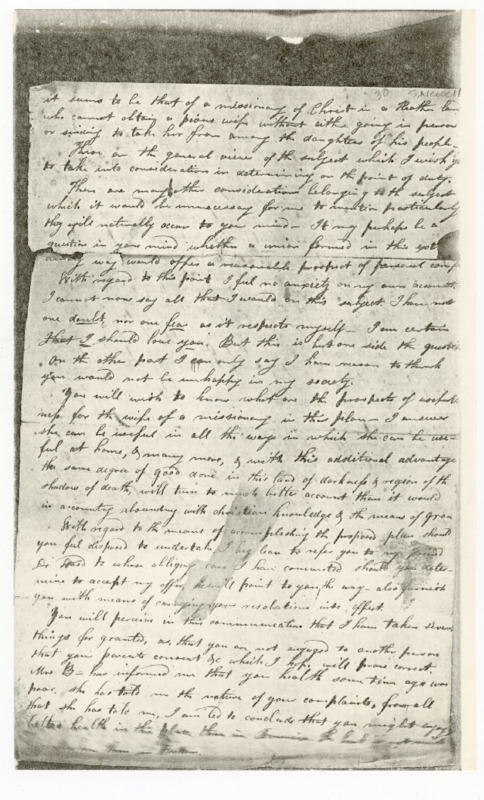 30 S. Newell
it seems to be that of a missionary of Christ in a Heathen land
who cannot obtain a pious wife without either going in person
or sending to take her from among the daughters of his people—
These are the general views of the subject which I wish you
to take into consideration in determining on the point of duty.
There are many other considerations belonging to the subject
which it would be unnecessary for me to mention particularly
they will naturally occur to your mind— It may perhaps be a
question in your mind whether a union formed in this
way would offer a reasonable prospect of personal
With regard to this point I feel no anxiety on my own account.
I cannot now say all that I would on this subject. I have not
one doubt, nor one fear as it respects myself— I am certain
that I should love you. But this is but one side the question
On the other part I can only say I have reason to think
you would not be unhappy in my society.
You will wish to know what are the prospects of useful-
ness for the wife of a missionary in this place— I answer
she can be useful in all the ways in which she can be use-
ful at home, & many more, & with this additional advantage
the same degree of good done in this land of darkness & region of the
shadow of death, will turn to much better account than it would
in a country abounding with christian knowledge & the means of grace
With regard to the means of accomplishing the proposed plan should
you feel disposed to undertake I beg leave to refer you to my friend
Dr to whose obliging care I have committed should you deter-
mine to accept my offer, he will point to you the way— also furnish
you with means of carrying your resolutions into effect.
You will perceive in this communication that I have taken several
things for granted, as, that you are not engaged to another person
that your parents consent &c which, I hope, will prove correct.
Mrs B— has informed me that your health some time ago was
poor. She has told me the nature of your complaints, & from all
that she has told me, I am led to conclude that you might enjoy
better health in this place than in America